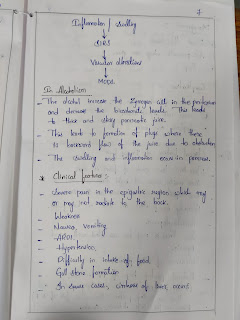 Inflammation / Swelling
↓
↓
Vascular alterations
↓
MODS.
In Alcoholism
- The alcohol increase the Zymogen cell in the pancreas
and decrease the bicarbonate levels. This leads
to thick and sticky pancreatic juice.
- This leads to formation of plugs where there
is backward flow of the juice due to obstruction
- The swelling and inflammation occurs in pancreas.
* Clinical features:
- Severe pain in the epigastric region which may
or may not radiate to the back.
- Weakness
- Nausea, vomiting
- Hypertension,
- Difficulty in intake of food.
- Gall stone formation
- In some cases, cirrhosis of liver occurs